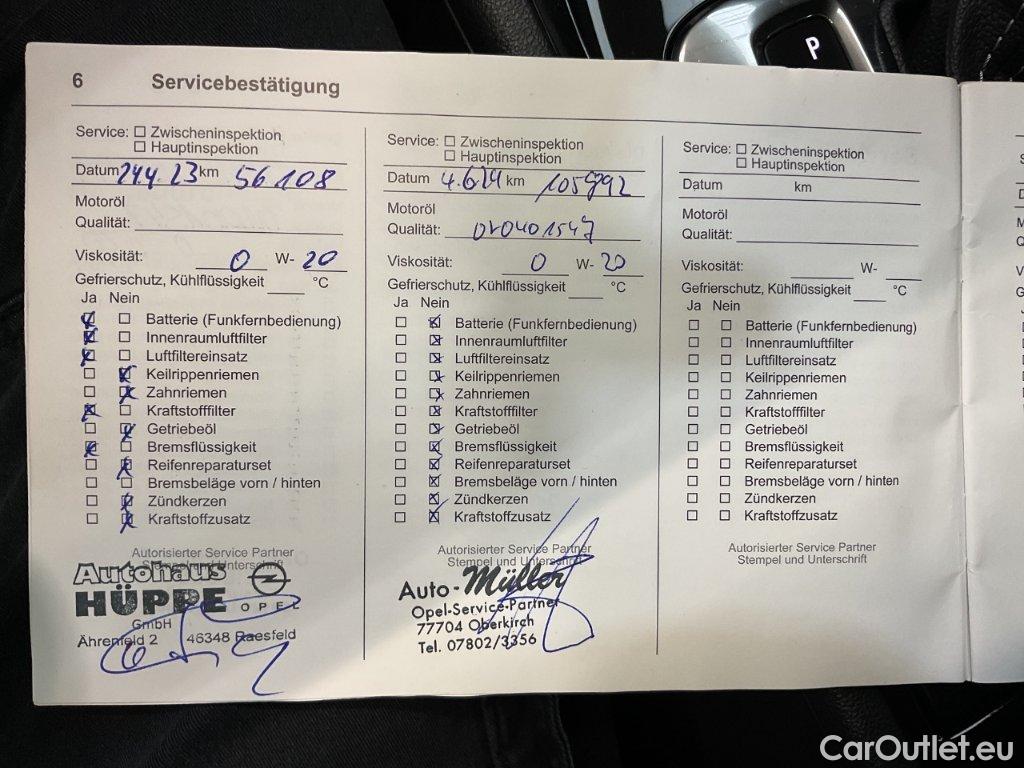 P
6 Servicebestätigung
Service: ☐ Zwischeninspektion
☐ Hauptinspektion
Datum 24.4.23 km 56108
Motoröl
Qualität:
Viskosität: 0 W- 20
Gefrierschutz, Kühlflüssigkeit °C
Ja Nein
☒ ☐ Batterie (Funkfernbedienung)
☒ ☐ Innenraumluftfilter
☒ ☐ Luftfiltereinsatz
☐ ☒ Keilrippenriemen
☐ ☒ Zahnriemen
☒ ☐ Kraftstofffilter
☐ ☒ Getriebeöl
☒ ☐ Bremsflüssigkeit
☐ ☒ Reifenreparaturset
☐ ☐ Bremsbeläge vorn / hinten
☐ ☒ Zündkerzen
☐ ☒ Kraftstoffzusatz
Autorisierter Service Partner
Stempel und Unterschrift
Autohaus
HÜPPE OPEL
GmbH
Ährenfeld 2 46348 Raesfeld
Service: ☐ Zwischeninspektion
☐ Hauptinspektion
Datum 4.624 km 105992
Motoröl
Qualität: 020401547
Viskosität: 0 W- 20
Gefrierschutz, Kühlflüssigkeit °C
Ja Nein
☐ ☒ Batterie (Funkfernbedienung)
☐ ☒ Innenraumluftfilter
☐ ☒ Luftfiltereinsatz
☐ ☒ Keilrippenriemen
☐ ☒ Zahnriemen
☐ ☒ Kraftstofffilter
☐ ☒ Getriebeöl
☐ ☒ Bremsflüssigkeit
☐ ☒ Reifenreparaturset
☐ ☒ Bremsbeläge vorn / hinten
☐ ☒ Zündkerzen
☐ ☒ Kraftstoffzusatz
Autorisierter Service Partner
Stempel und Unterschrift
Auto-Müller
Opel-Service-Partner
77704 Oberkirch
Tel. 07802/3356
Service: ☐ Zwischeninspektion
☐ Hauptinspektion
Datum km
Motoröl
Qualität:
Viskosität: W-
Gefrierschutz, Kühlflüssigkeit °C
Ja Nein
☐ ☐ Batterie (Funkfernbedienung)
☐ ☐ Innenraumluftfilter
☐ ☐ Luftfiltereinsatz
☐ ☐ Keilrippenriemen
☐ ☐ Zahnriemen
☐ ☐ Kraftstofffilter
☐ ☐ Getriebeöl
☐ ☐ Bremsflüssigkeit
☐ ☐ Reifenreparaturset
☐ ☐ Bremsbeläge vorn / hinten
☐ ☐ Zündkerzen
☐ ☐ Kraftstoffzusatz
Autorisierter Service Partner
Stempel und Unterschrift
CarOutlet.eu